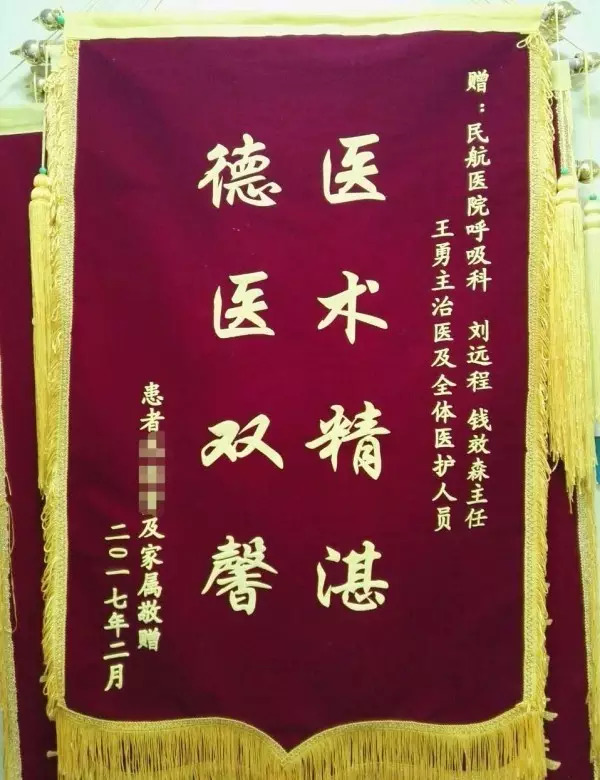 赠：民航医院呼吸科 刘远程 钱效森主任
王勇主治医及全体医护人员
医术精湛
德医双馨
患者
及家属敬赠
二〇一七年二月